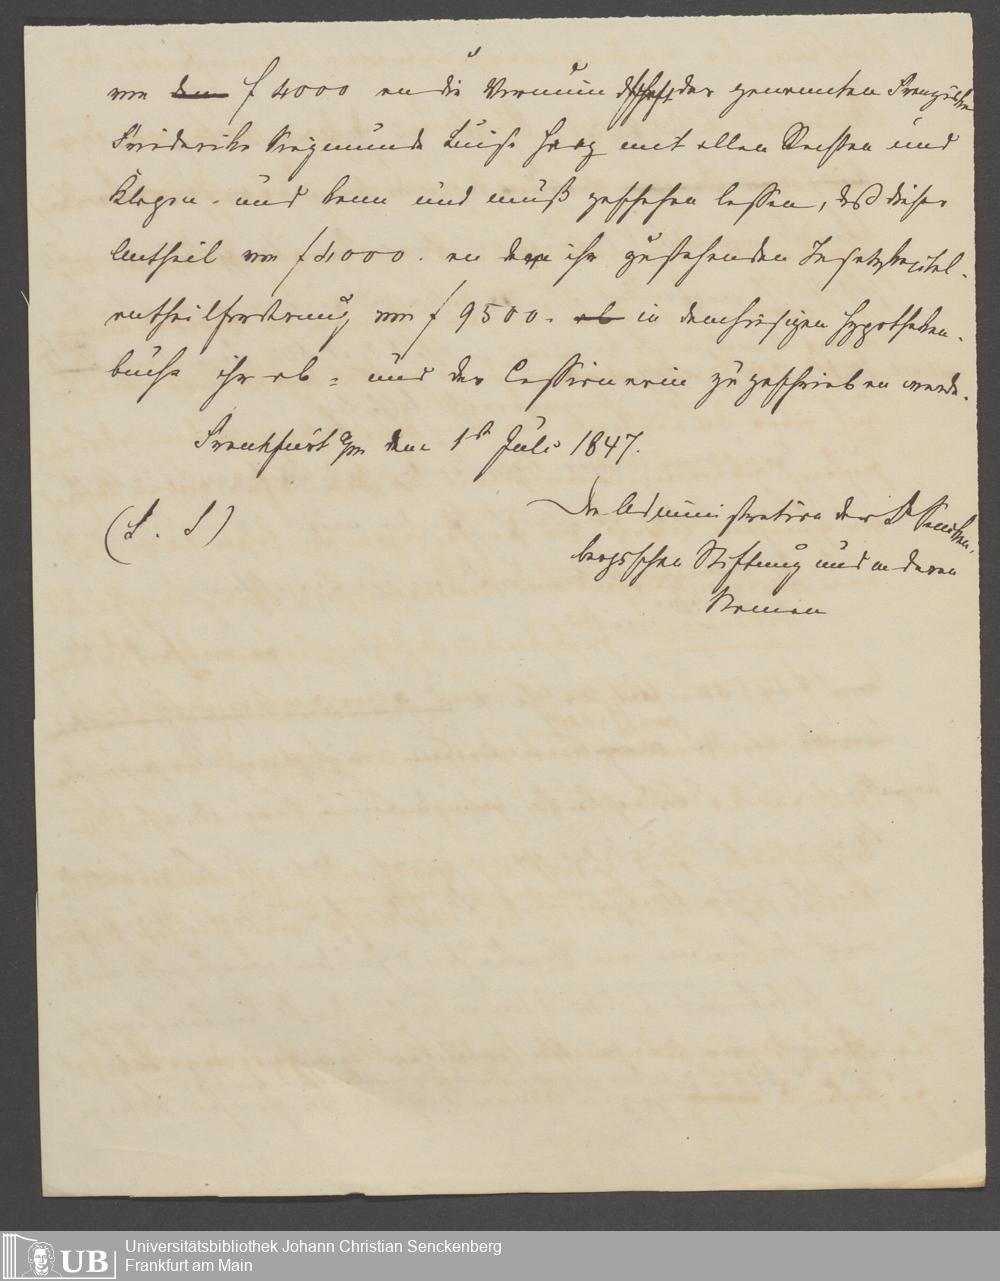 von den f 4000 an die Vormundschaft der genannten Franziska
Friderike Sigmunde Luise Haag mit allen Rechten und
Klagen. und kann und muß geschehen lassen, daß dieser
Antheil von f 4000. an dem ihr zustehenden Insatzkapital-
antheilforderung von f 9500. ab in dem hiesigen Hypotheken-
buche ihr ab = und der Cessionarin zugeschrieben werde.
Frankfurt a/m den 1st Juli 1847.
(L. S)
Die Administration der Dr Sencken-
bergischen Stiftung und in deren
Namen
UB
Universitätsbibliothek Johann Christian Senckenberg
Frankfurt am Main